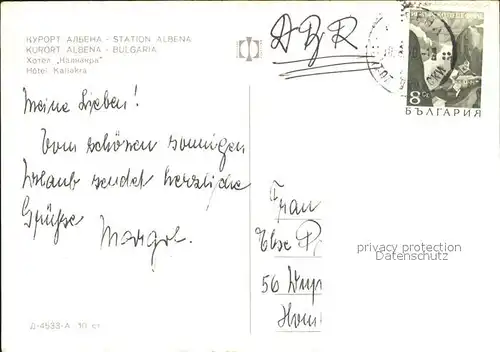 КУРОРТ АЛБЕНА - STATION ALBENA
KURORT ALBENA - BULGARIA
Хотел „Калиакра"
Hôtel Kaliakra
8 СТ
БЪЛГАРИЯ
Meine Lieben!
Vom schönen sonnigen
Urlaub sendet herzliche
Grüße
Margot.
Frau
Else
56 Wup
privacy protection
Datenschutz
Д-4533-А 10 ст.